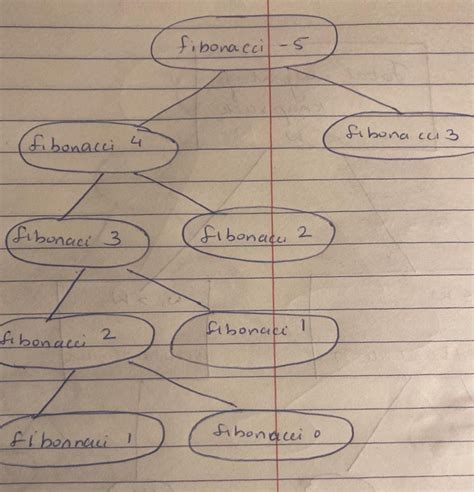 fibonacci -5
fibonacci 4
fibonacci 3
fibonaci 3
fibonacci 2
fibonacci 2
fibonaci 1
fibonnaci 1
fibonacci 0